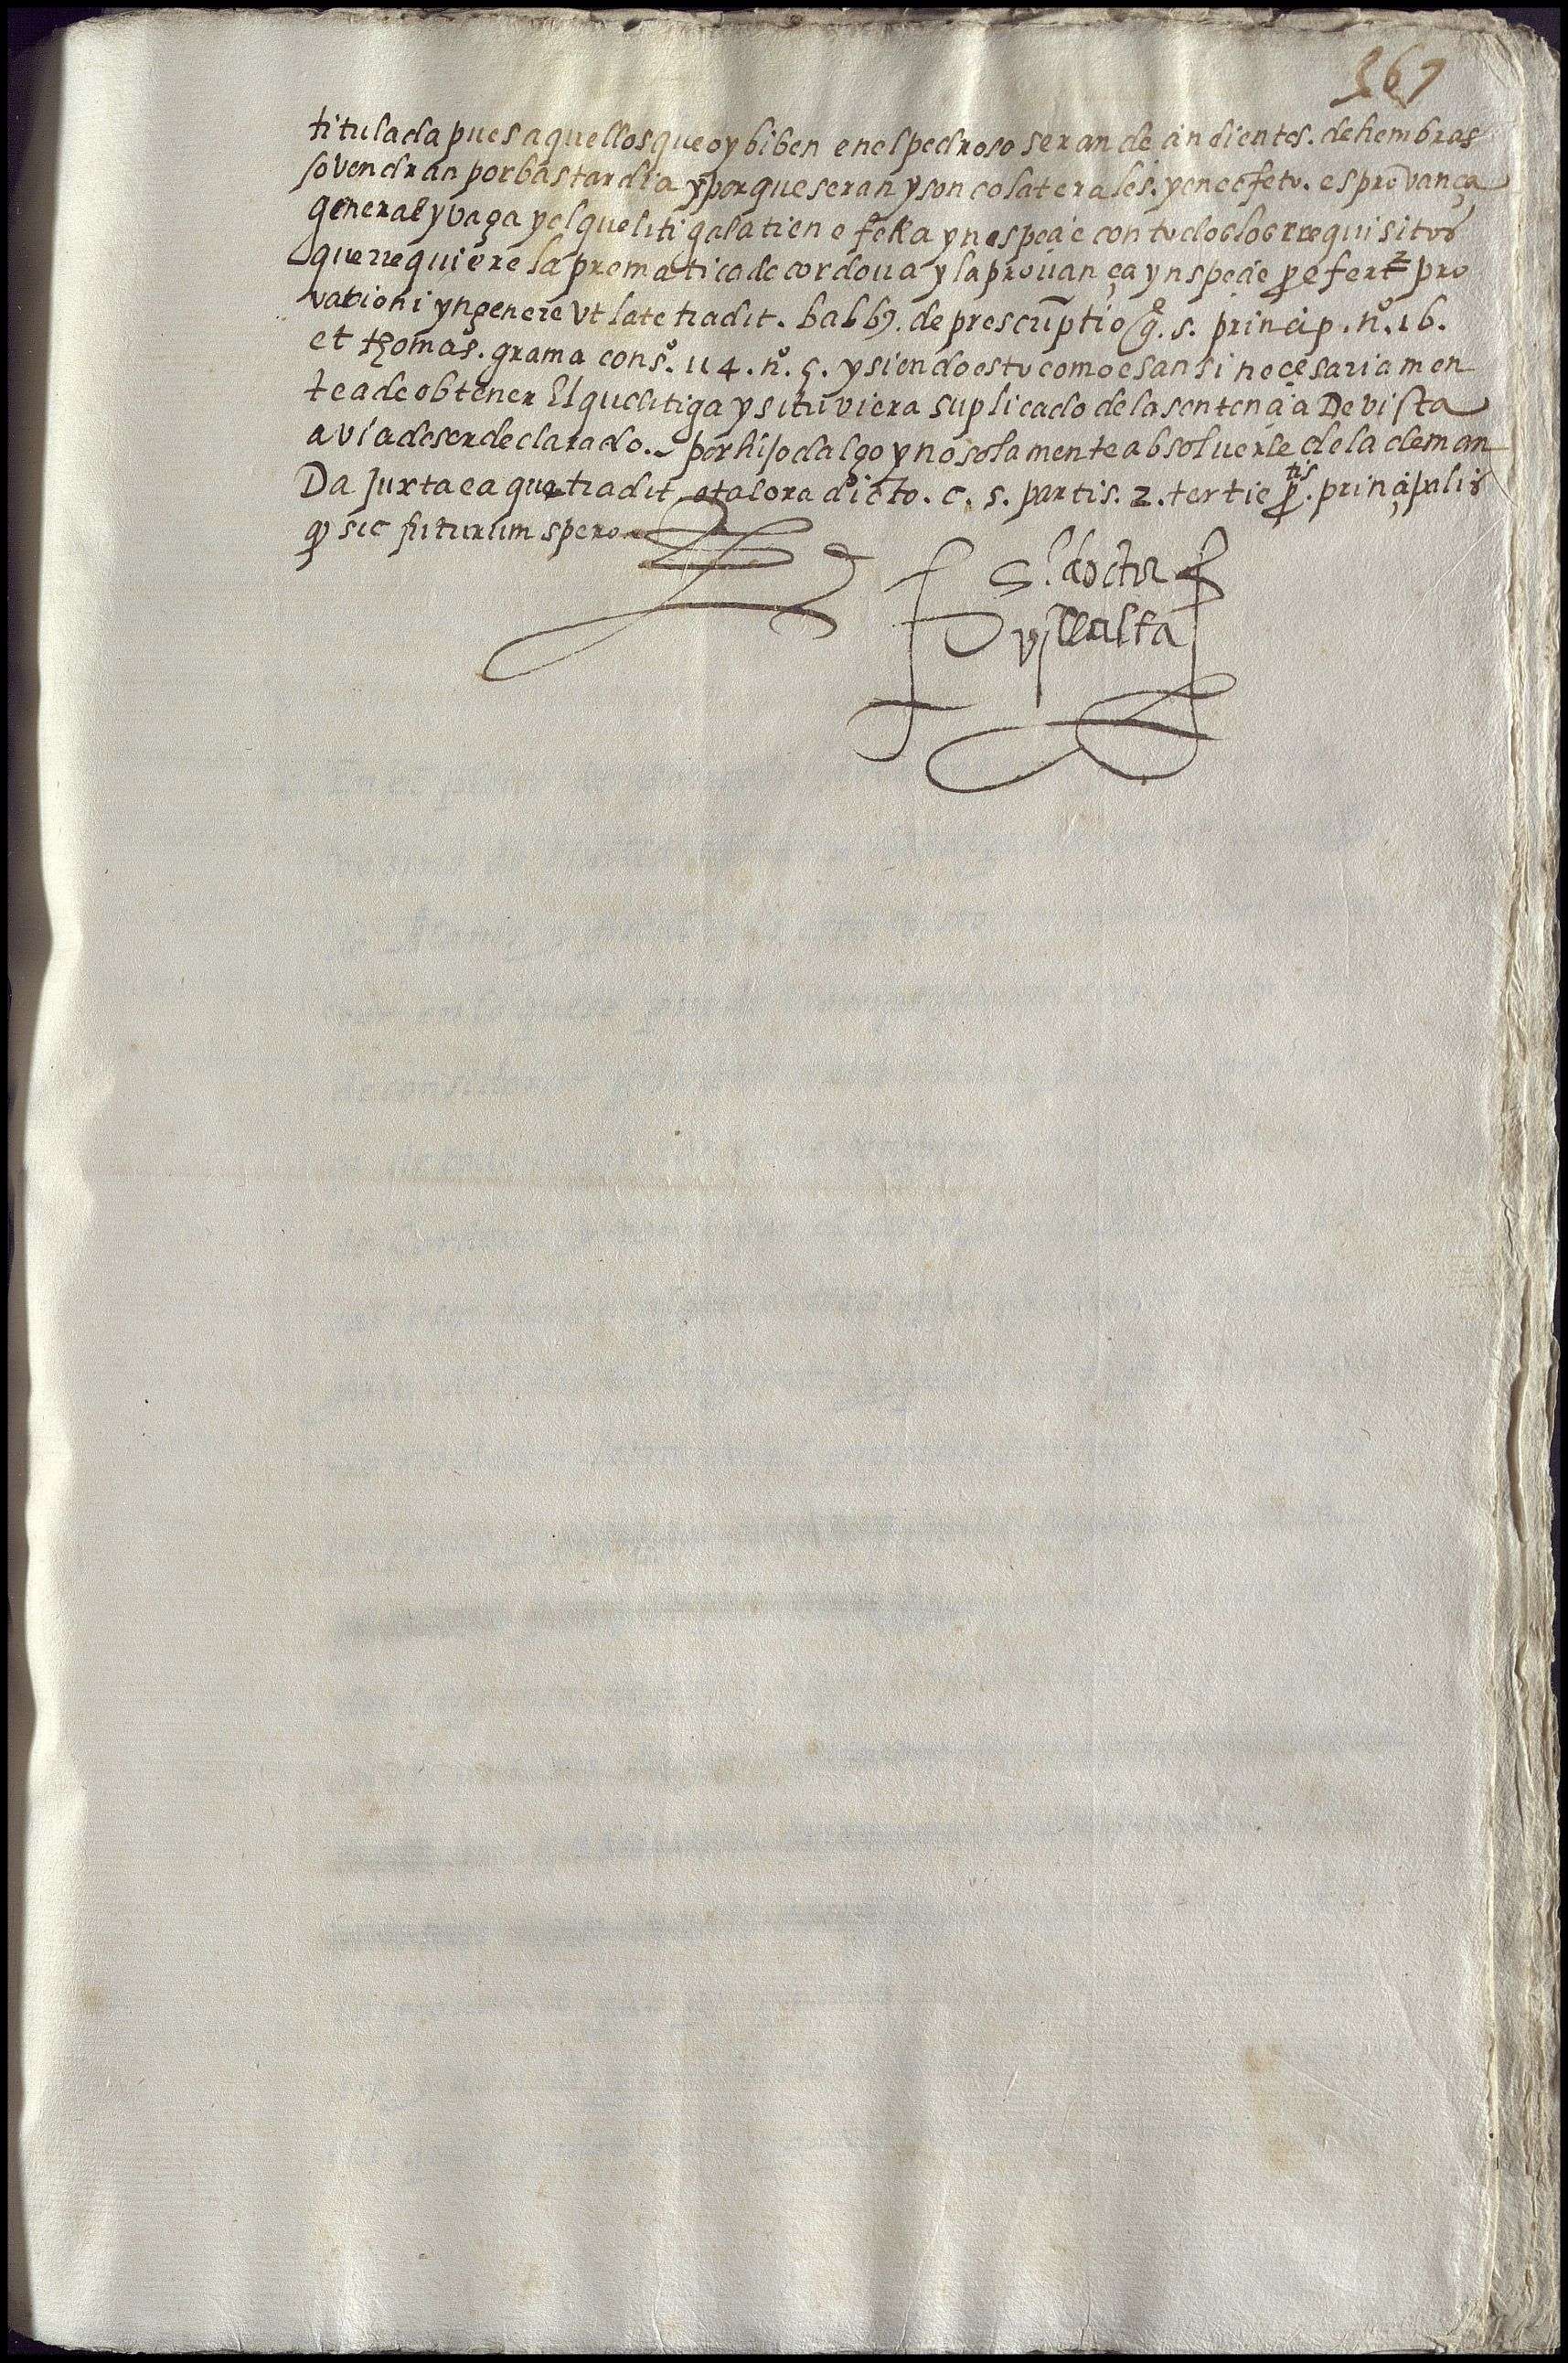 367
titulada pues aquellos que oy biben en el pedroso seran deçindientes. de hembras
so vendran por bastardia y porque seran y son colaterales. y en eefeto. es provança
general y vaga y el que litiga la tiene fecha yn espeçie con todos los rrequisitos
que rrequiere la prematica de cordova y la provança yn speçie prefertr pro
vationi yn genere vt late tradit. balbs. de prescriptio q. 5. princip. nº. 16.
et thomas. grama consº. 114. nº. 5. y siendo esto como es ansi neçesariamen
te a de obtener El que litiga y si tuviera suplicado de la sentençia De vista
avia de ser declarado. por hijodalgo y no solamente absolverle de la deman
Da juxta ea que tradit otalora dicto. c. 5. partis. 2. tertie ptis. prinçipalis
q sic futurum spero
el doctor
villalta